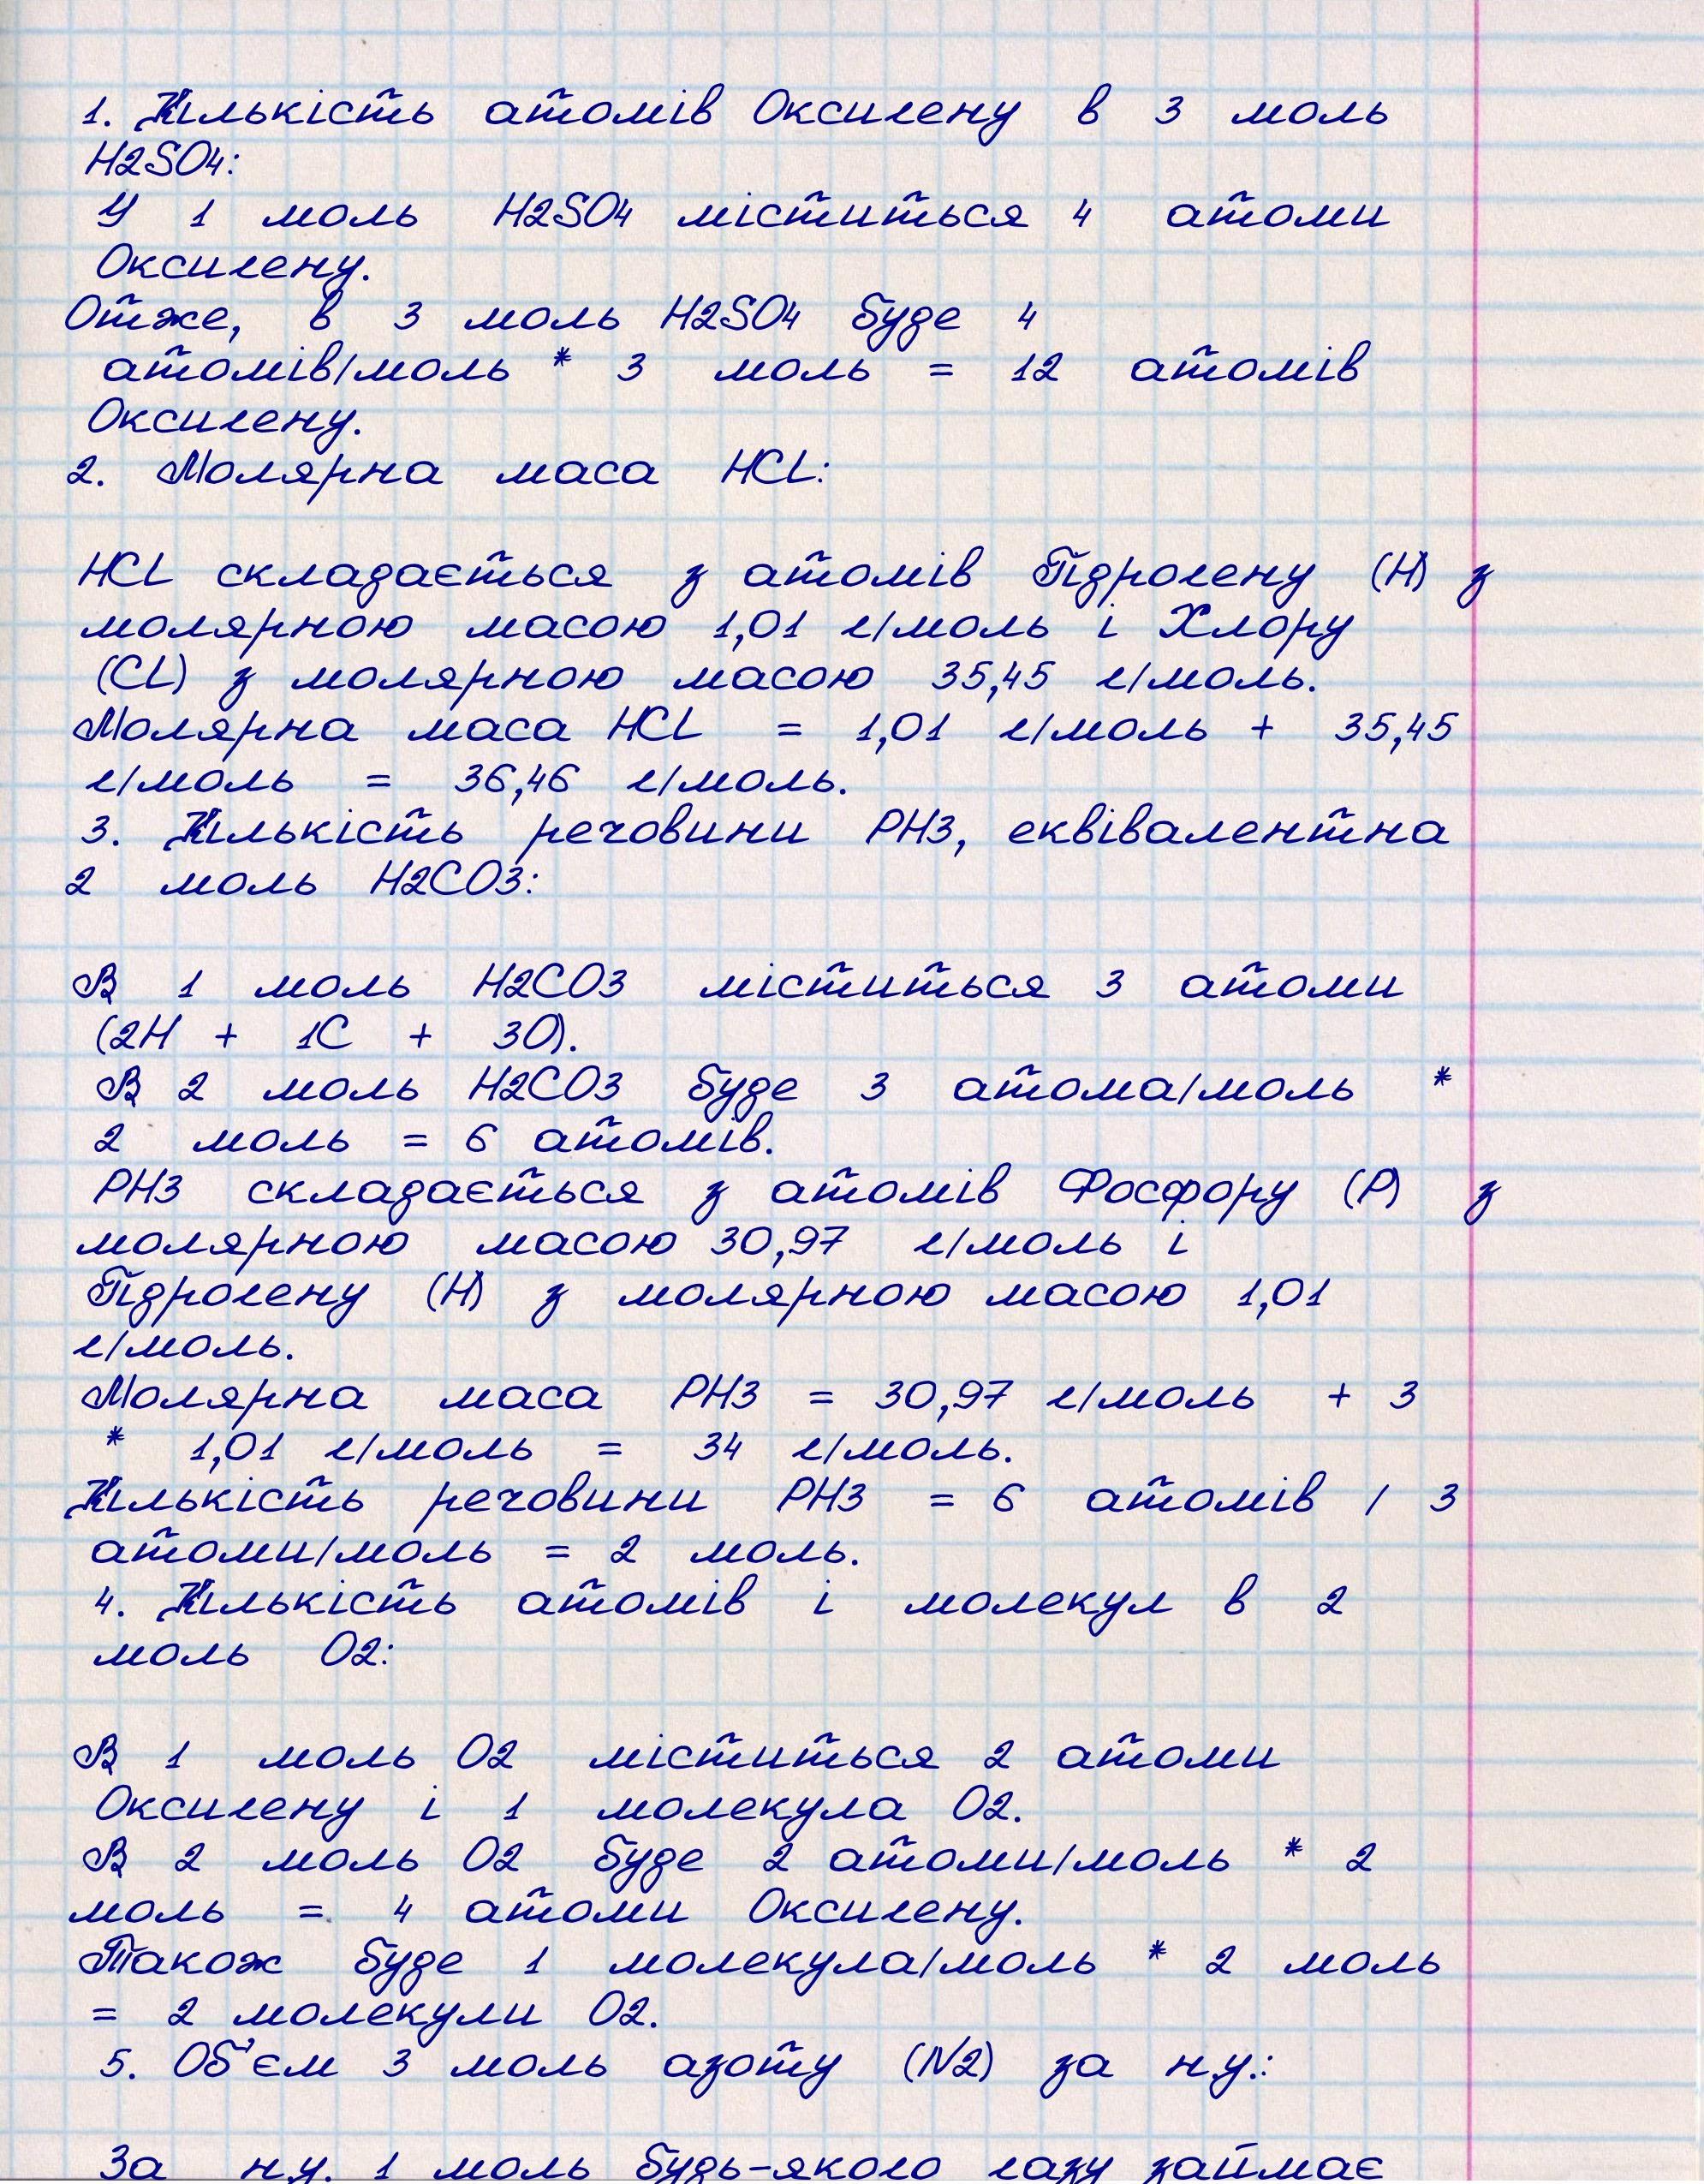 1. Кількість атомів Оксигену в 3 моль
H2SO4:
У 1 моль H2SO4 міститься 4 атоми
Оксигену.
Отже, в 3 моль H2SO4 буде 4
атомів/моль * 3 моль = 12 атомів
Оксигену.
2. Молярна маса HCL:
HCL складається з атомів Гідрогену (H) з
молярною масою 1,01 г/моль і Хлору
(CL) з молярною масою 35,45 г/моль.
Молярна маса HCL = 1,01 г/моль + 35,45
г/моль = 36,46 г/моль.
3. Кількість речовини PH3, еквівалентна
2 моль H2CO3:
В 1 моль H2CO3 міститься 3 атоми
(2H + 1C + 3O).
В 2 моль H2CO3 буде 3 атома/моль *
2 моль = 6 атомів.
PH3 складається з атомів Фосфору (P) з
молярною масою 30,97 г/моль і
Гідрогену (H) з молярною масою 1,01
г/моль.
Молярна маса PH3 = 30,97 г/моль + 3
* 1,01 г/моль = 34 г/моль.
Кількість речовини PH3 = 6 атомів / 3
атоми/моль = 2 моль.
4. Кількість атомів і молекул в 2
моль O2:
В 1 моль O2 міститься 2 атоми
Оксигену і 1 молекула O2.
В 2 моль O2 буде 2 атоми/моль * 2
моль = 4 атоми Оксигену.
Також буде 1 молекула/моль * 2 моль
= 2 молекули O2.
5. Об'єм 3 моль азоту (N2) за н.у.:
За н.у. 1 моль будь-якого газу займає